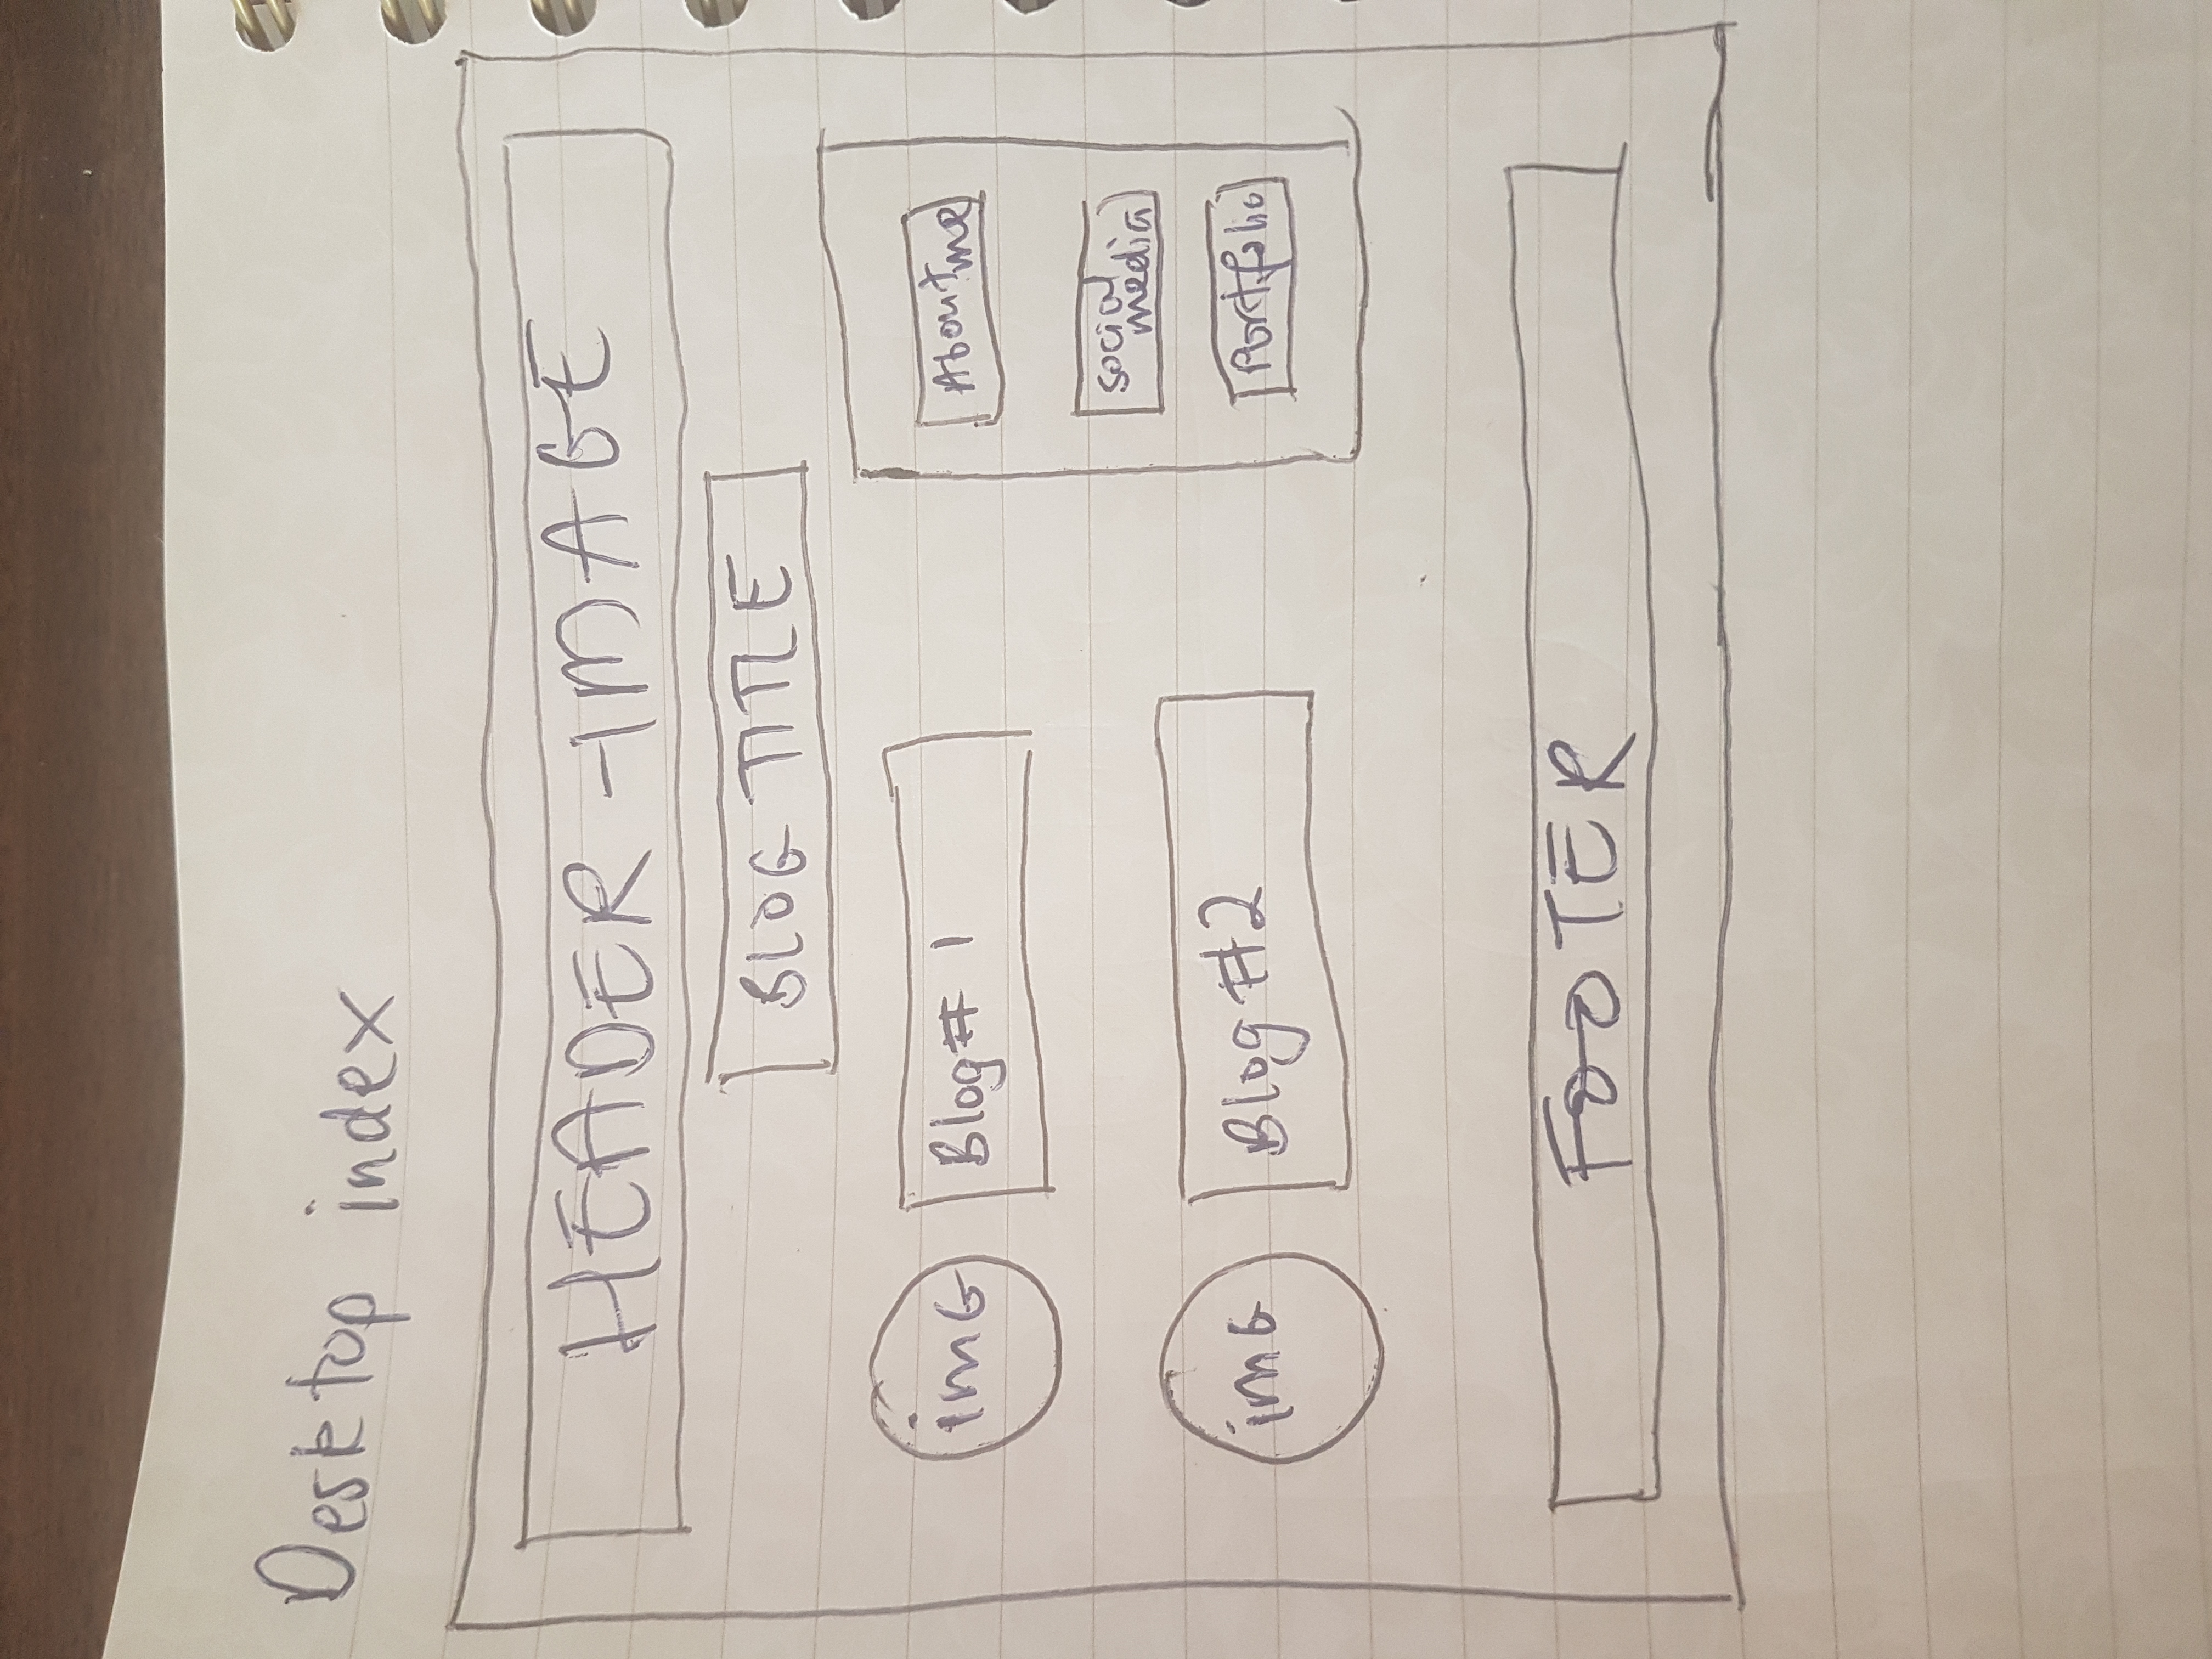 Desktop index
HEADER-IMAGE
BLOG TITLE
imG
Blog# 1
About me
social
media
imG
Blog #2
Portfolio
FOOTER